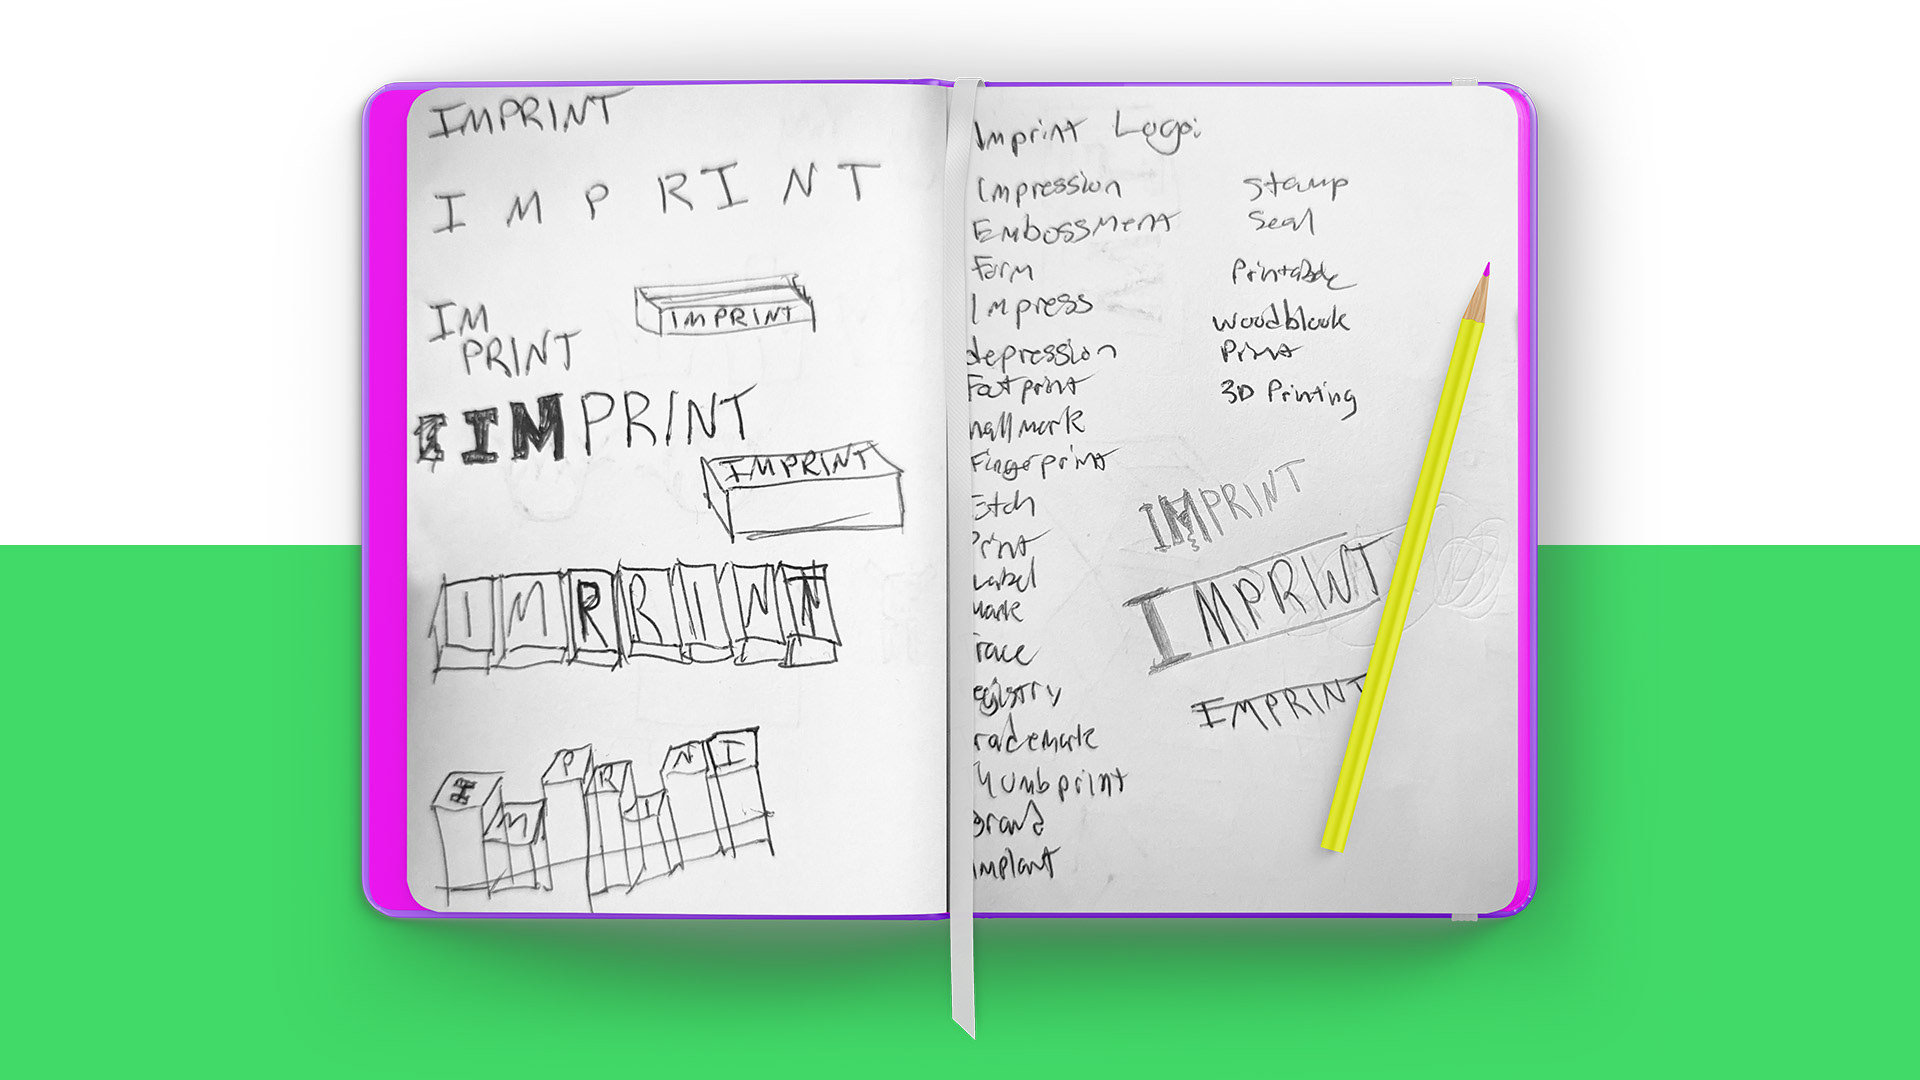 IMPRINT
I M P R I N T
IM
PRINT
IMPRINT
I IMPRINT
IMPRINT
I M R R I N T
I M P R I N I
Imprint Logo:
Impression
Embossment
Form
Impress
depression
Footprint
hallmark
Fingerprint
Etch
Print
Label
Mark
race
egistry
rademark
humbprint
Brand
implant
Stamp
Seal
Printable
Woodblock
Print
3D Printing
IMPRINT
IMPRINT
IMPRINT